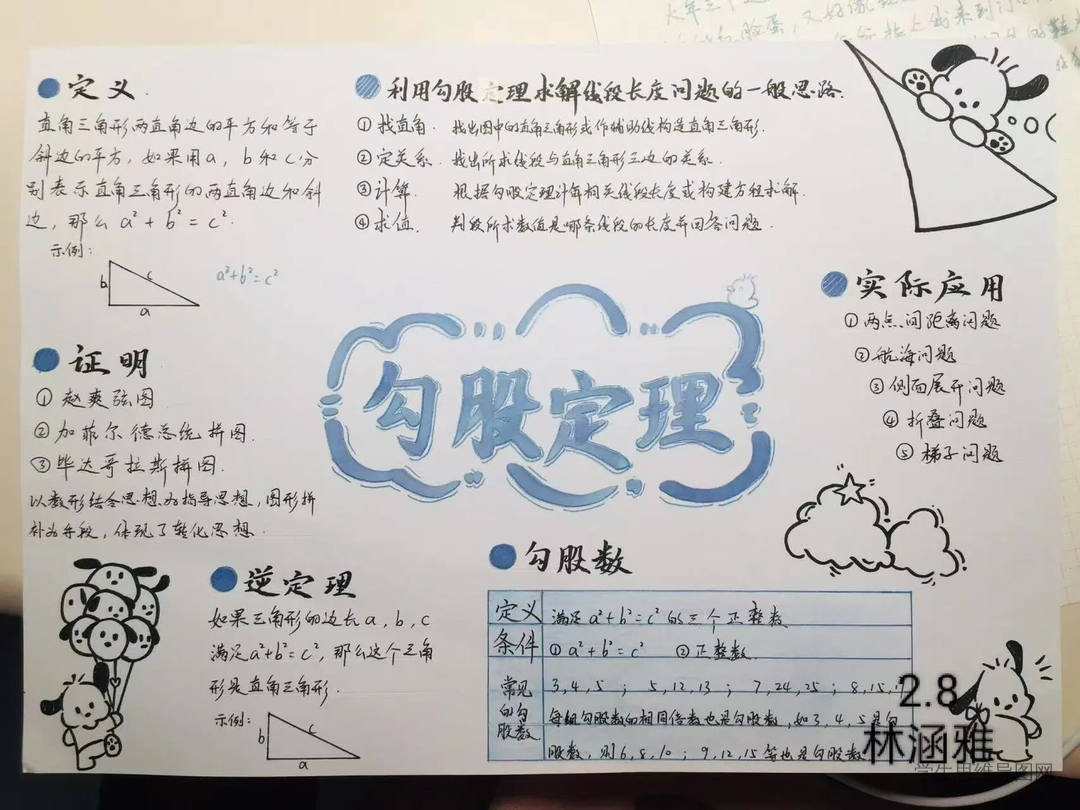 定义.
直角三角形两直角边的平方和等于
斜边的平方，如果用a，b和c分
别表示直角三角形的两直角边和斜
边，那么 a²+b²=c².
示例：
b c a
a²+b²=c²
利用勾股定理求解线段长度问题的一般思路.
①找直角. 找出图中的直角三角形或作辅助线构造直角三角形.
②定关系. 找出所求线段与直角三角形三边的关系.
③计算. 根据勾股定理计算相关线段长度或构建方程求解.
④求值. 判段所求数值是哪条线段的长度并回答问题.
勾股定理
实际应用
①两点间距离问题
②航海问题
③侧面展开问题
④折叠问题
⑤梯子问题
证明
①赵爽弦图
②加菲尔德总统拼图.
③毕达哥拉斯拼图.
以数形结合思想为指导思想，图形拼
补为手段，体现了转化思想.
逆定理
如果三角形的边长a，b，c
满足a²+b²=c²，那么这个三角
形是直角三角形.
示例：
b c a
勾股数
定义 满足a²+b²=c²的三个正整数
条件 ①a²+b²=c² ②正整数.
常见的勾股数
3,4,5；5,12,13；7,24,25；8,15,
每组勾股数的相同倍数也是勾股数，如3,4,5是勾
股数，则6,8,10；9,12,15等也是勾股数
2.8
林涵雅
学生思维导图网